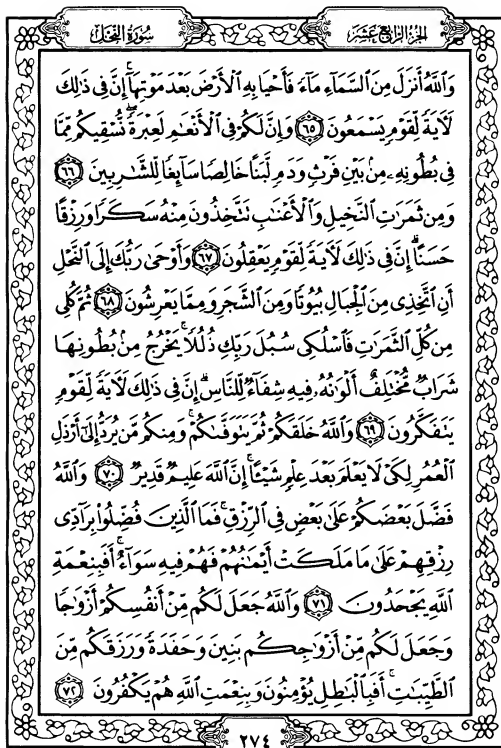 الجزء الرابع عشر
سورة النحل
وَٱللَّهُ أَنزَلَ مِنَ ٱلسَّمَآءِ مَآءً فَأَحْيَا بِهِ ٱلْأَرْضَ بَعْدَ مَوْتِهَآ ۚ إِنَّ فِى ذَٰلِكَ
لَـَٔايَةً لِّقَوْمٍ يَسْمَعُونَ ٦٥ وَإِنَّ لَكُمْ فِى ٱلْأَنْعَـٰمِ لَعِبْرَةً ۖ نُّسْقِيكُم مِّمَّا
فِى بُطُونِهِۦ مِنۢ بَيْنِ فَرْثٍ وَدَمٍ لَّبَنًا خَالِصًا سَآئِغًا لِّلشَّـٰرِبِينَ ٦٦
وَمِن ثَمَرَٰتِ ٱلنَّخِيلِ وَٱلْأَعْنَـٰبِ تَتَّخِذُونَ مِنْهُ سَكَرًا وَرِزْقًا
حَسَنًا ۗ إِنَّ فِى ذَٰلِكَ لَـَٔايَةً لِّقَوْمٍ يَعْقِلُونَ ٦٧ وَأَوْحَىٰ رَبُّكَ إِلَى ٱلنَّحْلِ
أَنِ ٱتَّخِذِى مِنَ ٱلْجِبَالِ بُيُوتًا وَمِنَ ٱلشَّجَرِ وَمِمَّا يَعْرِشُونَ ٦٨ ثُمَّ كُلِى
مِن كُلِّ ٱلثَّمَرَٰتِ فَٱسْلُكِى سُبُلَ رَبِّكِ ذُلُلًا ۚ يَخْرُجُ مِنۢ بُطُونِهَا
شَرَابٌ مُّخْتَلِفٌ أَلْوَٰنُهُۥ فِيهِ شِفَآءٌ لِّلنَّاسِ ۗ إِنَّ فِى ذَٰلِكَ لَـَٔايَةً لِّقَوْمٍ
يَتَفَكَّرُونَ ٦٩ وَٱللَّهُ خَلَقَكُمْ ثُمَّ يَتَوَفَّىٰكُمْ ۚ وَمِنكُم مَّن يُرَدُّ إِلَىٰٓ أَرْذَلِ
ٱلْعُمُرِ لِكَىْ لَا يَعْلَمَ بَعْدَ عِلْمٍ شَيْـًٔا ۚ إِنَّ ٱللَّهَ عَلِيمٌ قَدِيرٌ ٧٠ وَٱللَّهُ
فَضَّلَ بَعْضَكُمْ عَلَىٰ بَعْضٍ فِى ٱلرِّزْقِ ۚ فَمَا ٱلَّذِينَ فُضِّلُوا۟ بِرَآدِّى
رِزْقِهِمْ عَلَىٰ مَا مَلَكَتْ أَيْمَـٰنُهُمْ فَهُمْ فِيهِ سَوَآءٌ ۚ أَفَبِنِعْمَةِ
ٱللَّهِ يَجْحَدُونَ ٧١ وَٱللَّهُ جَعَلَ لَكُم مِّنْ أَنفُسِكُمْ أَزْوَٰجًا
وَجَعَلَ لَكُم مِّنْ أَزْوَٰجِكُم بَنِينَ وَحَفَدَةً وَرَزَقَكُم مِّنَ
ٱلطَّيِّبَـٰتِ ۚ أَفَبِٱلْبَـٰطِلِ يُؤْمِنُونَ وَبِنِعْمَتِ ٱللَّهِ هُمْ يَكْفُرُونَ ٧٢
٢٧٤